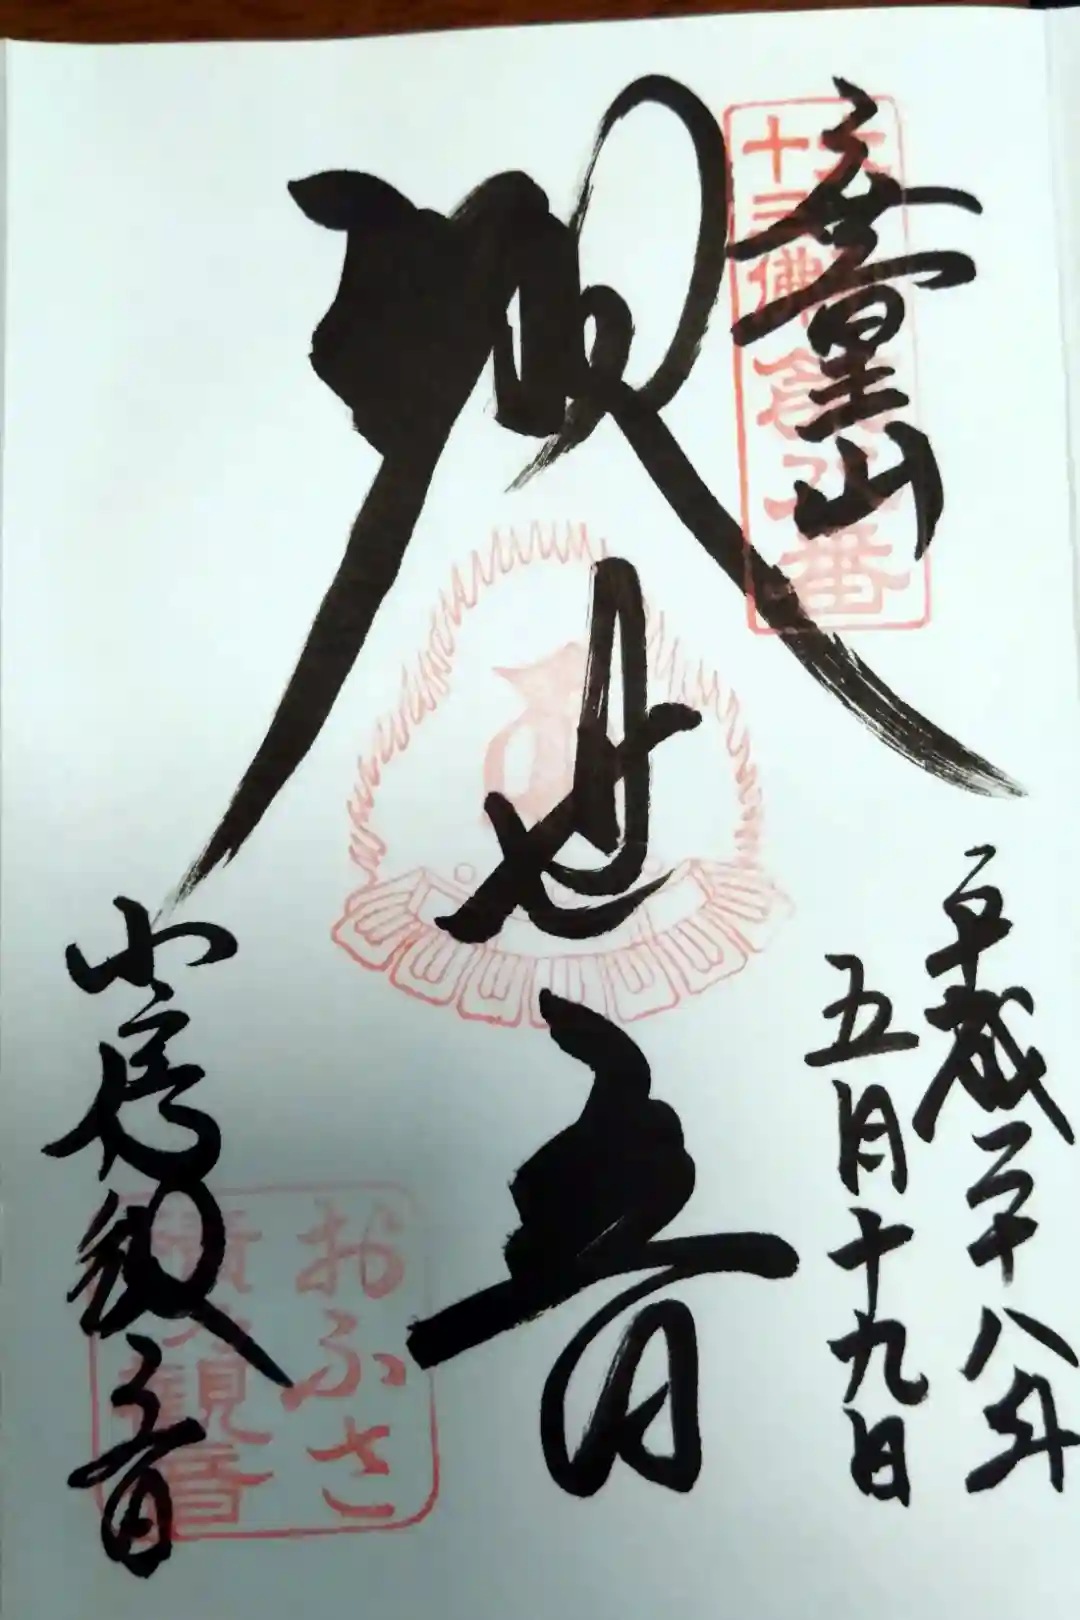 無量山
十三佛
平成二十八年
五月十九日
観世音
小房観音
おふさ
観音